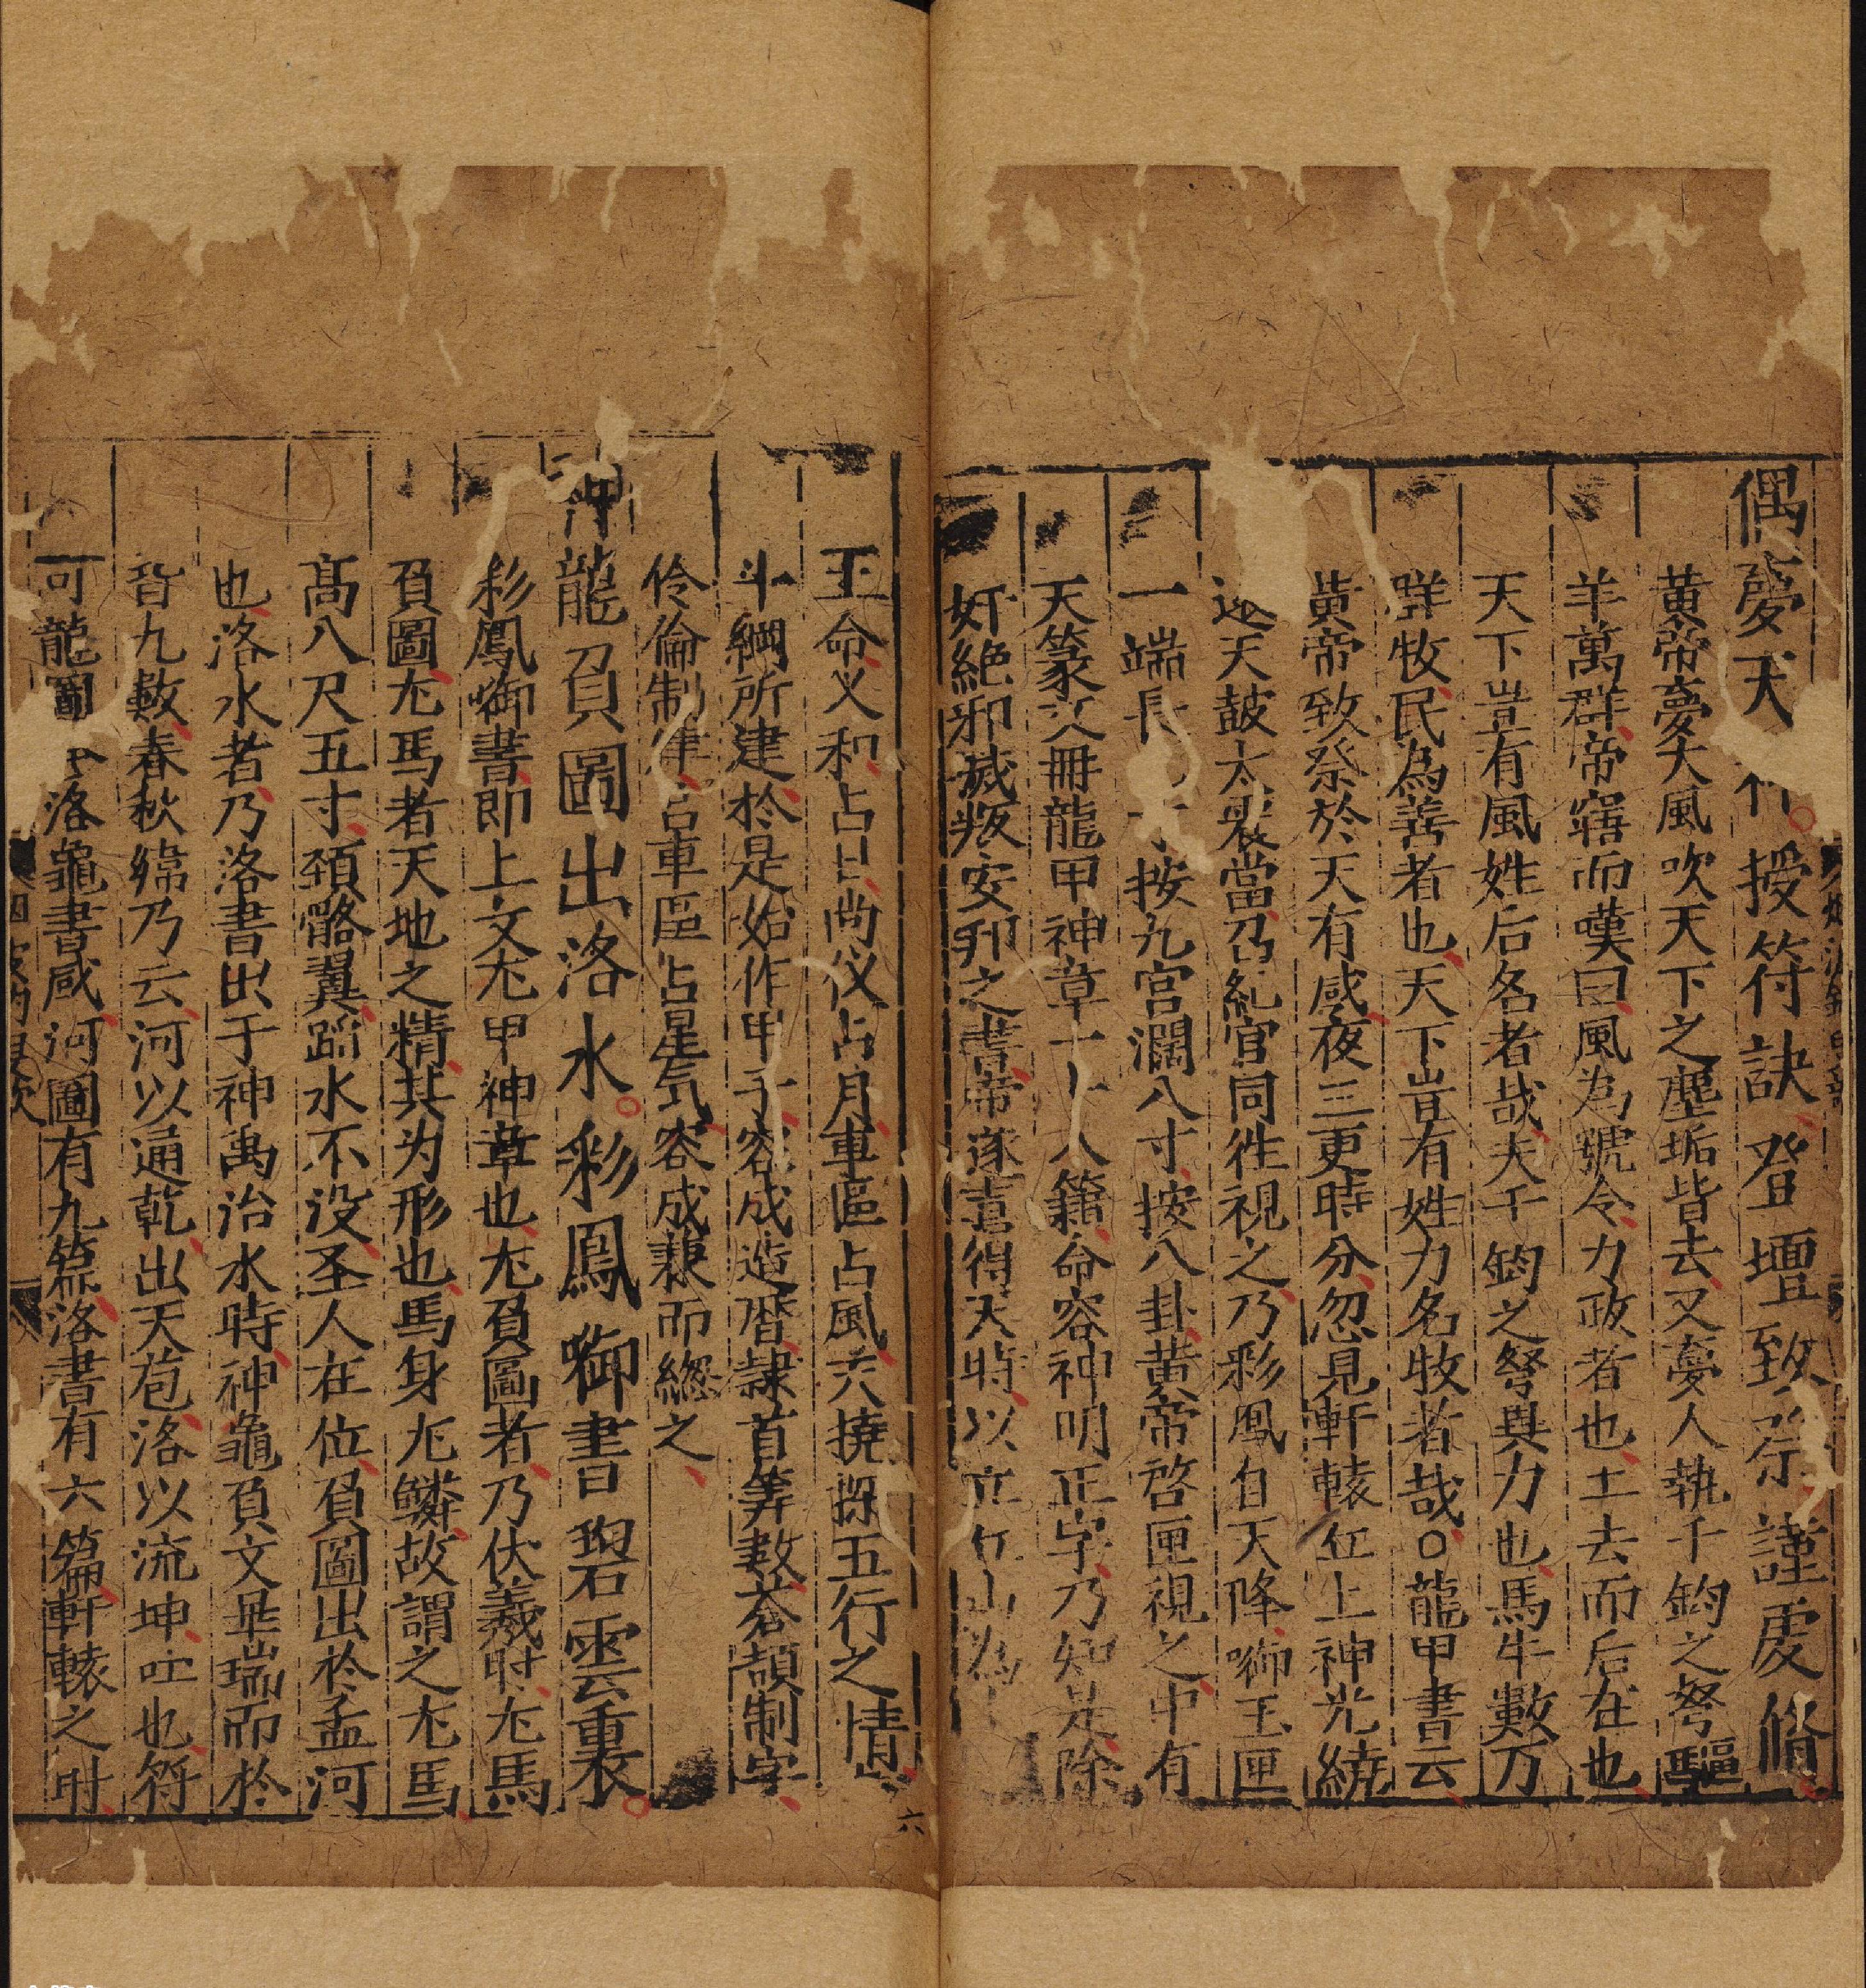 偶夢天 授符訣登壇致祭謹虔脩
黄帝夢大風吹天下之塵垢皆去又夢人執千鈞之弩驅
羊萬群帝寤而嘆曰風為號令力政者也土去而后在也
天下豈有風姓后名者哉夫千鈞之弩異力也馬牛數万
群牧民為善者也天下豈有姓力名牧者哉○龍甲書云
黄帝致祭於天有感夜三更時分忽見軒轅丘上神光繞
天皷太 當乃紀官同徃視之乃彩鳳自天降啣玉匣
一端長 按九宫濶八寸按八卦黄帝啓匣視之中有
天篆 册龍甲神章 籍命容神明正字乃知是除
奸絶邪滅叛安邦之書帝遂喜得天時以立
玉命义和占日尚仪占月車區占風大撓探五行之情
斗綱所建於是始作甲子容成造曆隷首筭数蒼頡制字
伶倫制律 車區占星气容成兼而總之
神龍負圖出洛水彩鳳啣書碧雲裏
彩鳳啣書即上文尨甲神章也尨負圖者乃伏羲时尨馬
負圖尨馬者天地之精其为形也馬身尨鱗故謂之尨馬
髙八尺五寸頚骼翼蹈水不没圣人在位負圖出於孟河
也洛水者乃洛書出于神禹治水時神龜負文是瑞而於
背九數春秋緯乃云河以通乾出天苞洛以流坤吐也符
可龍圖 洛龜書感河圖有九篇洛書有六篇軒轅之时
六